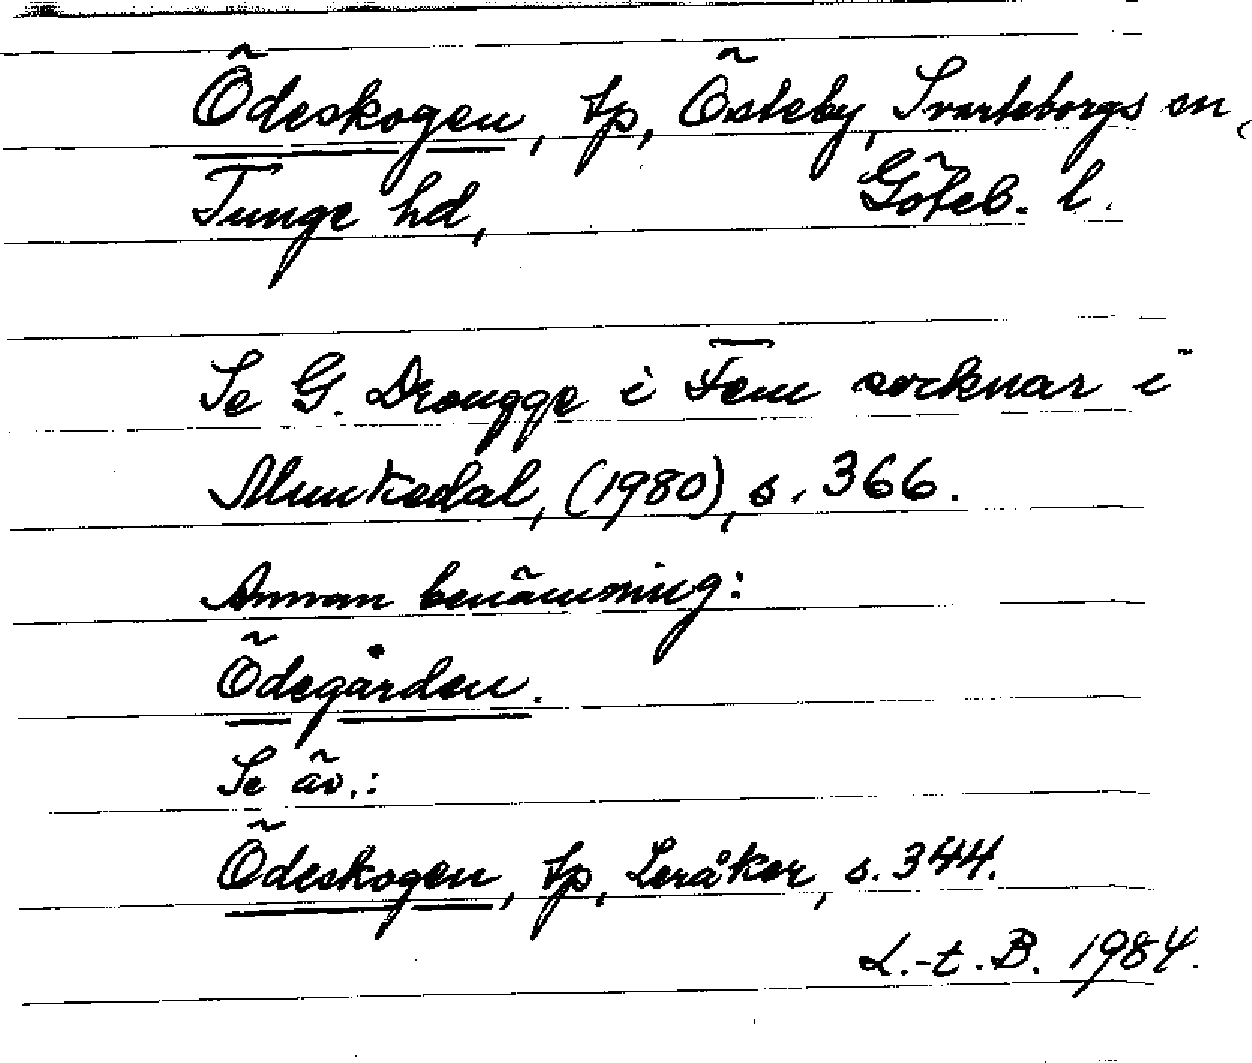 Ödeskogen, tp, Östeby, Svarteborgs sn,
Tunge hd, Göteb. l.
Se G. Drougge i Fem socknar i
Munkedal, (1980), s. 366.
Annan benämning:
Ödegården.
Se äv.:
Ödeskogen, tp, Leråker, s. 344.
L.-t. B. 1984.